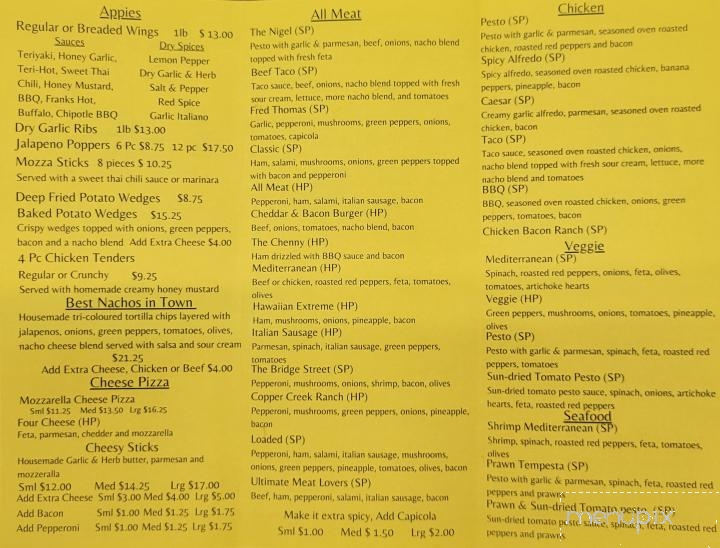 Appies
Regular or Breaded Wings 1lb $ 13.00
Sauces
Teriyaki, Honey Garlic,
Teri-Hot, Sweet Thai
Chili, Honey Mustard,
BBQ, Franks Hot,
Buffalo, Chipotle BBQ
Dry Spices
Lemon Pepper
Dry Garlic & Herb
Salt & Pepper
Red Spice
Garlic Italiano
Dry Garlic Ribs 1lb $13.00
Jalapeno Poppers 6 Pc $8.75 12 pc $17.50
Mozza Sticks 8 pieces $ 10.25
Served with a sweet thai chili sauce or marinara
Deep Fried Potato Wedges $8.75
Baked Potato Wedges $15.25
Crispy wedges topped with onions, green peppers,
bacon and a nacho blend Add Extra Cheese $4.00
4 Pc Chicken Tenders
Regular or Crunchy $9.25
Served with homemade creamy honey mustard
Best Nachos in Town
Housemade tri-coloured tortilla chips layered with
jalapenos, onions, green peppers, tomatoes, olives,
nacho cheese blend served with salsa and sour cream
$21.25
Add Extra Cheese, Chicken or Beef $4.00
Cheese Pizza
Mozzarella Cheese Pizza
Sml $11.25 Med $13.50 Lrg $16.25
Four Cheese (HP)
Feta, parmesan, chedder and mozzarella
Cheesy Sticks
Housemade Garlic & Herb butter, parmesan and
mozzeralla
Sml $12.00 Med $14.25 Lrg $17.00
Add Extra Cheese Sml $3.00 Med $4.00 Lrg $5.00
Add Bacon Sml $1.00 Med $1.25 Lrg $1.75
Add Pepperoni Sml $1.00 Med $1.25 Lrg $1.75
All Meat
The Nigel (SP)
Pesto with garlic & parmesan, beef, onions, nacho blend
topped with fresh feta
Beef Taco (SP)
Taco sauce, beef, onions, nacho blend topped with fresh
sour cream, lettuce, more nacho blend, and tomatoes
Fred Thomas (SP)
Garlic, pepperoni, mushrooms, green peppers, onions,
tomatoes, capicola
Classic (SP)
Ham, salami, mushrooms, onions, green peppers topped
with bacon and pepperoni
All Meat (HP)
Pepperoni, ham, salami, italian sausage, bacon
Cheddar & Bacon Burger (HP)
Beef, onions, tomatoes, nacho blend, bacon
The Chenny (HP)
Ham drizzled with BBQ sauce and bacon
Mediterranean (HP)
Beef or chicken, roasted red peppers, feta, tomatoes,
olives
Hawaiian Extreme (HP)
Ham, mushrooms, onions, pineapple, bacon
Italian Sausage (HP)
Parmesan, spinach, italian sausage, green peppers,
tomatoes
The Bridge Street (SP)
Pepperoni, mushrooms, onions, shrimp, bacon, olives
Copper Creek Ranch (HP)
Pepperoni, mushrooms, green peppers, onions, pineapple,
bacon
Loaded (SP)
Pepperoni, ham, italian sausage, salami, mushrooms,
onions, green peppers, pineapple, tomatoes, olives, bacon
Ultimate Meat Lovers (SP)
Beef, ham, pepperoni, salami, italian sausage, bacon
Make it extra spicy, Add Capicola
Sml $1.00 Med $ 1.50 Lrg $2.00
Chicken
Pesto (SP)
Pesto with garlic & parmesan, seasoned oven roasted
chicken, roasted red peppers and bacon
Spicy Alfredo (SP)
Spicy alfredo, seasoned oven roasted chicken, banana
peppers, pineapple, bacon
Caesar (SP)
Creamy garlic alfredo, parmesan, seasoned oven roasted
chicken, bacon
Taco (SP)
Taco sauce, seasoned oven roasted chicken, onions,
nacho blend topped with fresh sour cream, lettuce, more
nacho blend and tomatoes
BBQ (SP)
BBQ, seasoned oven roasted chicken, onions, green
peppers, tomatoes, bacon
Chicken Bacon Ranch (SP)
Veggie
Mediterranean (SP)
Spinach, roasted red peppers, onions, feta, olives,
tomatoes, artichoke hearts
Veggie (HP)
Green peppers, mushrooms, onions, tomatoes, pineapple,
olives
Pesto (SP)
Pesto with garlic & parmesan, spinach, feta, roasted red
peppers, tomatoes
Sun-dried Tomato Pesto (SP)
Sun-dried tomato pesto sauce, spinach, onions, artichoke
hearts, feta, roasted red peppers
Seafood
Shrimp Mediterranean (SP)
Shrimp, spinach, roasted red peppers, feta, tomatoes,
olives
Prawn Tempesta (SP)
Pesto with garlic & parmesan, spinach, feta, roasted red
peppers and prawns
Prawn & Sun-dried Tomato pesto (SP)
Sun-dried tomato pesto sauce, spinach, feta, roasted red
peppers and prawns
menupix